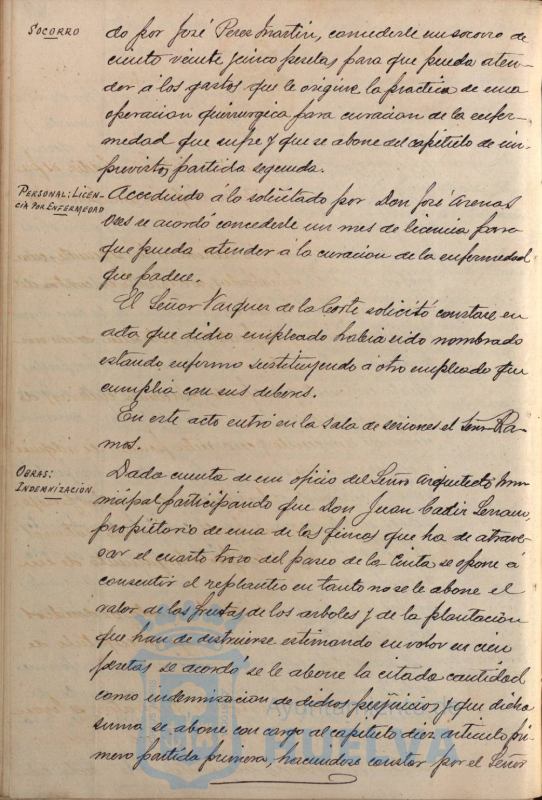 SOCORRO
do por José Perez Martin, concederle un socorro de
ciento veinte y cinco pesetas para que pueda aten-
der á los gastos que le origine la practica de una
operacion quirurgica para curacion de la enfer-
medad que sufre y que se abone del capitulo de im-
previstos, partida segunda.
PERSONAL: LICEN-
CIA POR ENFERMEDAD
Accediendo á lo solicitado por Don José Arenas
se acordó concederle un mes de licencia para
que pueda atender á la curacion de la enfermedad
que padece.
El Señor Vazquez de la Corte solicitó constase en
acta que dicho empleado habia sido nombrado
estando enfermo sustituyendo á otro empleado que
cumplia con sus deberes.
En este acto entró en la sala de sesiones el Señor Ra-
mos.
OBRAS:
INDEMNIZACIÓN
Dada cuenta de un oficio del Señor Arquitecto Mu-
nicipal participando que Don Juan Cadir Serrano,
propietario de una de las fincas que ha de atrave-
sar el cuarto trozo del paseo de la Cinta se opone á
consentir el replanteo en tanto no se le abone el
valor de los frutos de los arboles y de la plantación
que han de destruirse estimando su valor en cien
pesetas se acordó se le abone la citada cantidad
como indemnizacion de dichos perjuicios y que dicha
suma se abone con cargo al capitulo diez articulo pri-
mero partida primera, haciendose constar por el Señor
HUELVA